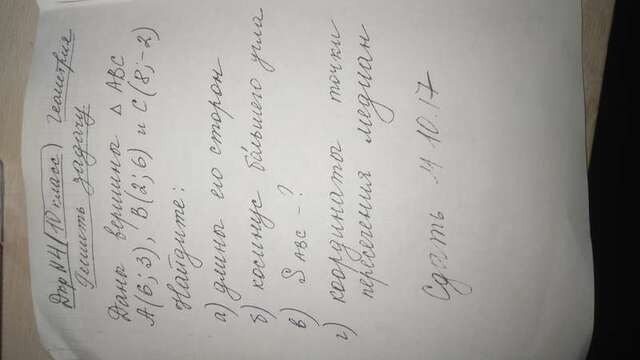 Дкр №4 (10 класс) Геометрия
Решить задачу
Даны вершины △ ABC
A(6; 3), B(2; 6) и C(8; -2)
Найдите:
а) длины его сторон
б) косинус бо́льшего угла
в) S ABC - ?
г) координаты точки
пересечения медиан
Сдать 10.17